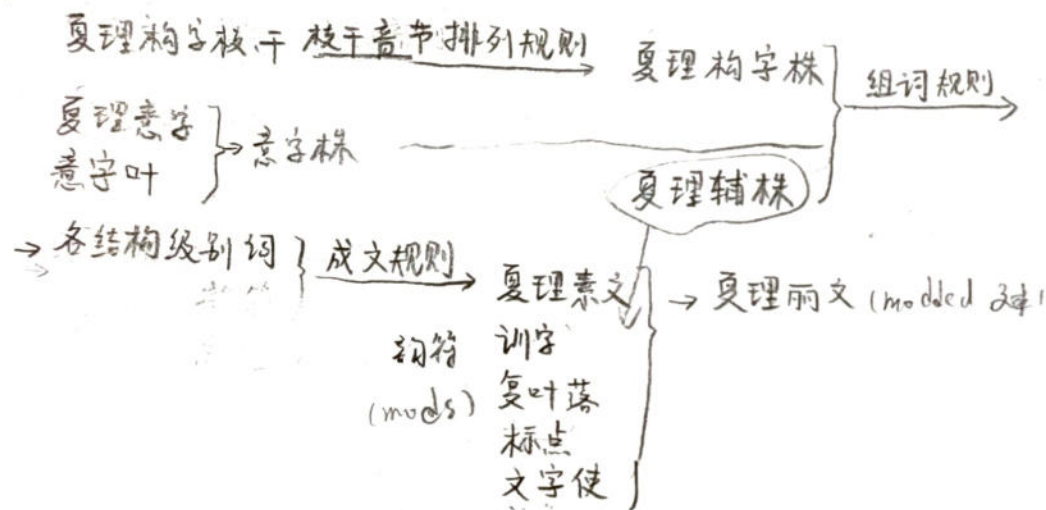 夏理构字枝、干 枝干音节排列规则 夏理构字株
组词规则
夏理意字
意字叶
意字株
夏理辅株
各结构级别词 成文规则 夏理素文
夏理丽文 (modded
韵符 训字
(mods) 复叶落
标点
文字使